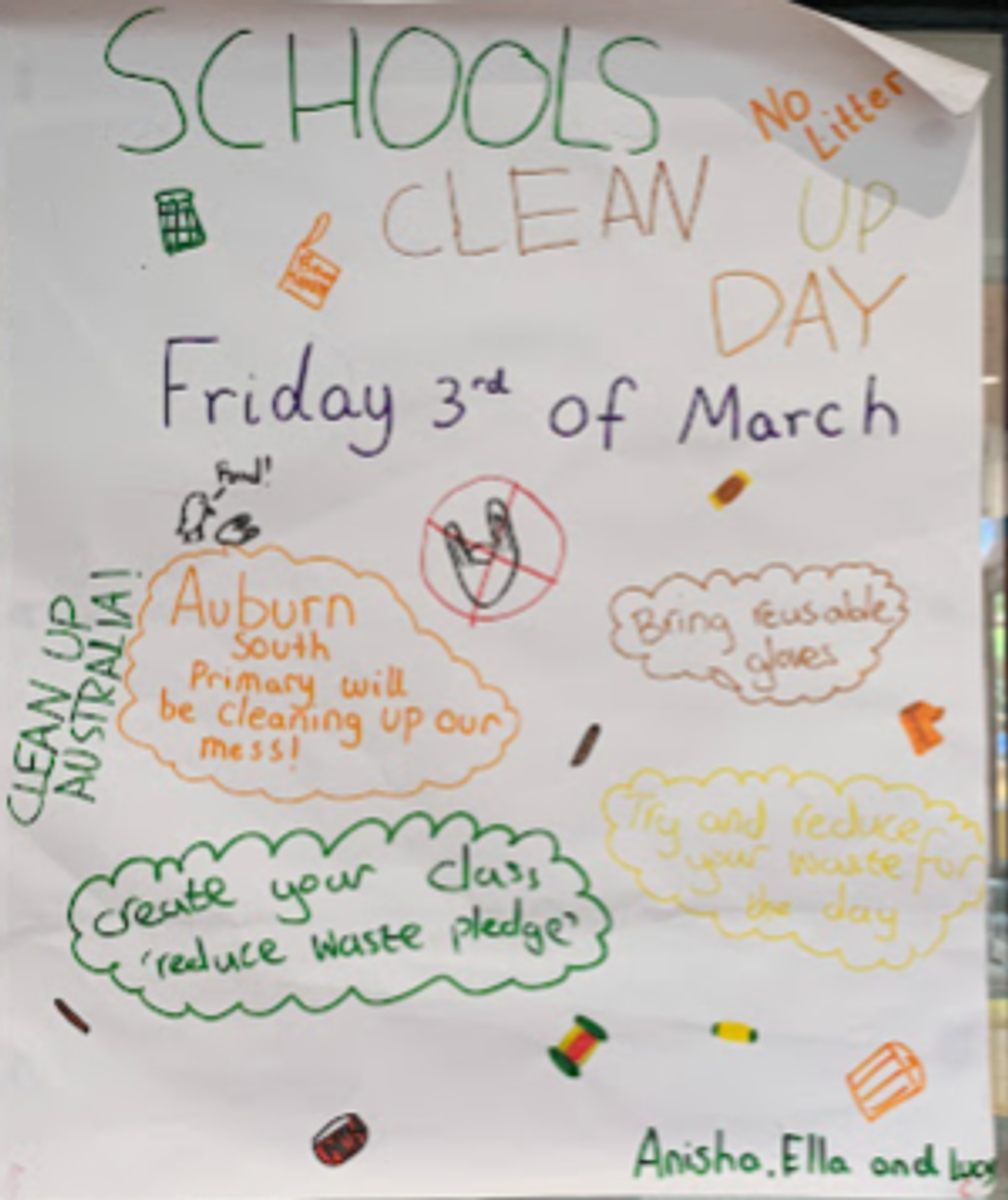 SCHOOLS
No
Litter
CLEAN UP
DAY
Friday 3rd of March
Food!
CLEAN UP
AUSTRALIA!
Auburn
South
Primary will
be cleaning up our
mess!
Bring reusable
gloves
Try and reduce
your waste for
the day
create your class
'reduce waste pledge'
Anisha, Ella and Lucy